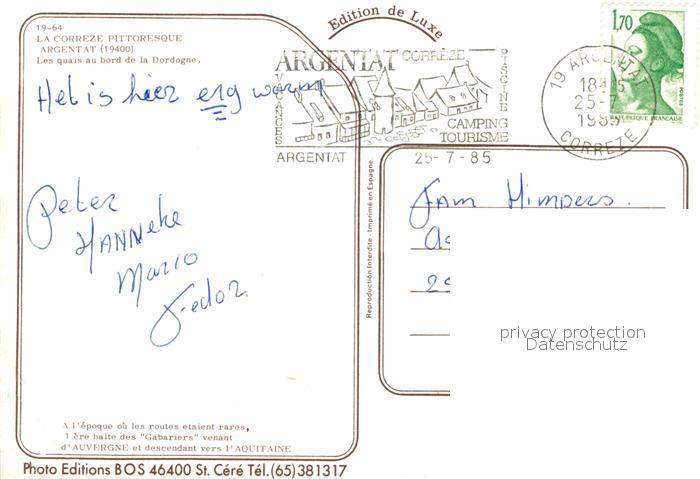 Edition de Luxe
19-64
LA CORREZE PITTORESQUE
ARGENTAT (19400)
Les quais au bord de la Dordogne.
Het is hier erg warm
Peter
HANNeke
Mario
Fedor.
A l'époque où les routes etaient rares,
1 ère halte des "Gabariers" venant
d'AUVERGNE et descendant vers l'AQUITAINE
Photo Editions BOS 46400 St. Céré Tél.(65)381317
Reproduction Interdite - Imprimé en Espagne.
ARGENTAT CORRÈZE
VACANCES
PISCINE
CAMPING
TOURISME
ARGENTAT
25-7-85
19 ARGENTAT
25-7
CORREZE
1,70
POSTES
REPUBLIQUE FRANÇAISE
Fam Himpers.
privacy protection
Datenschutz